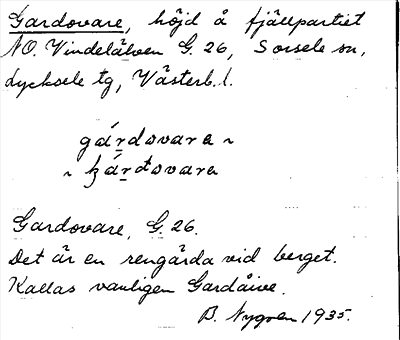 Gardovare, höjd å fjällpartiet
NO. Vindelälven G. 26, Sorsele sn,
Lycksele tg, Västerb. l.
gárdovara ~
~ kárdovara
Gardovare, G. 26.
Det är en rengärda vid berget.
Kallas vanligen Gardåive.
B. Nygren 1935.